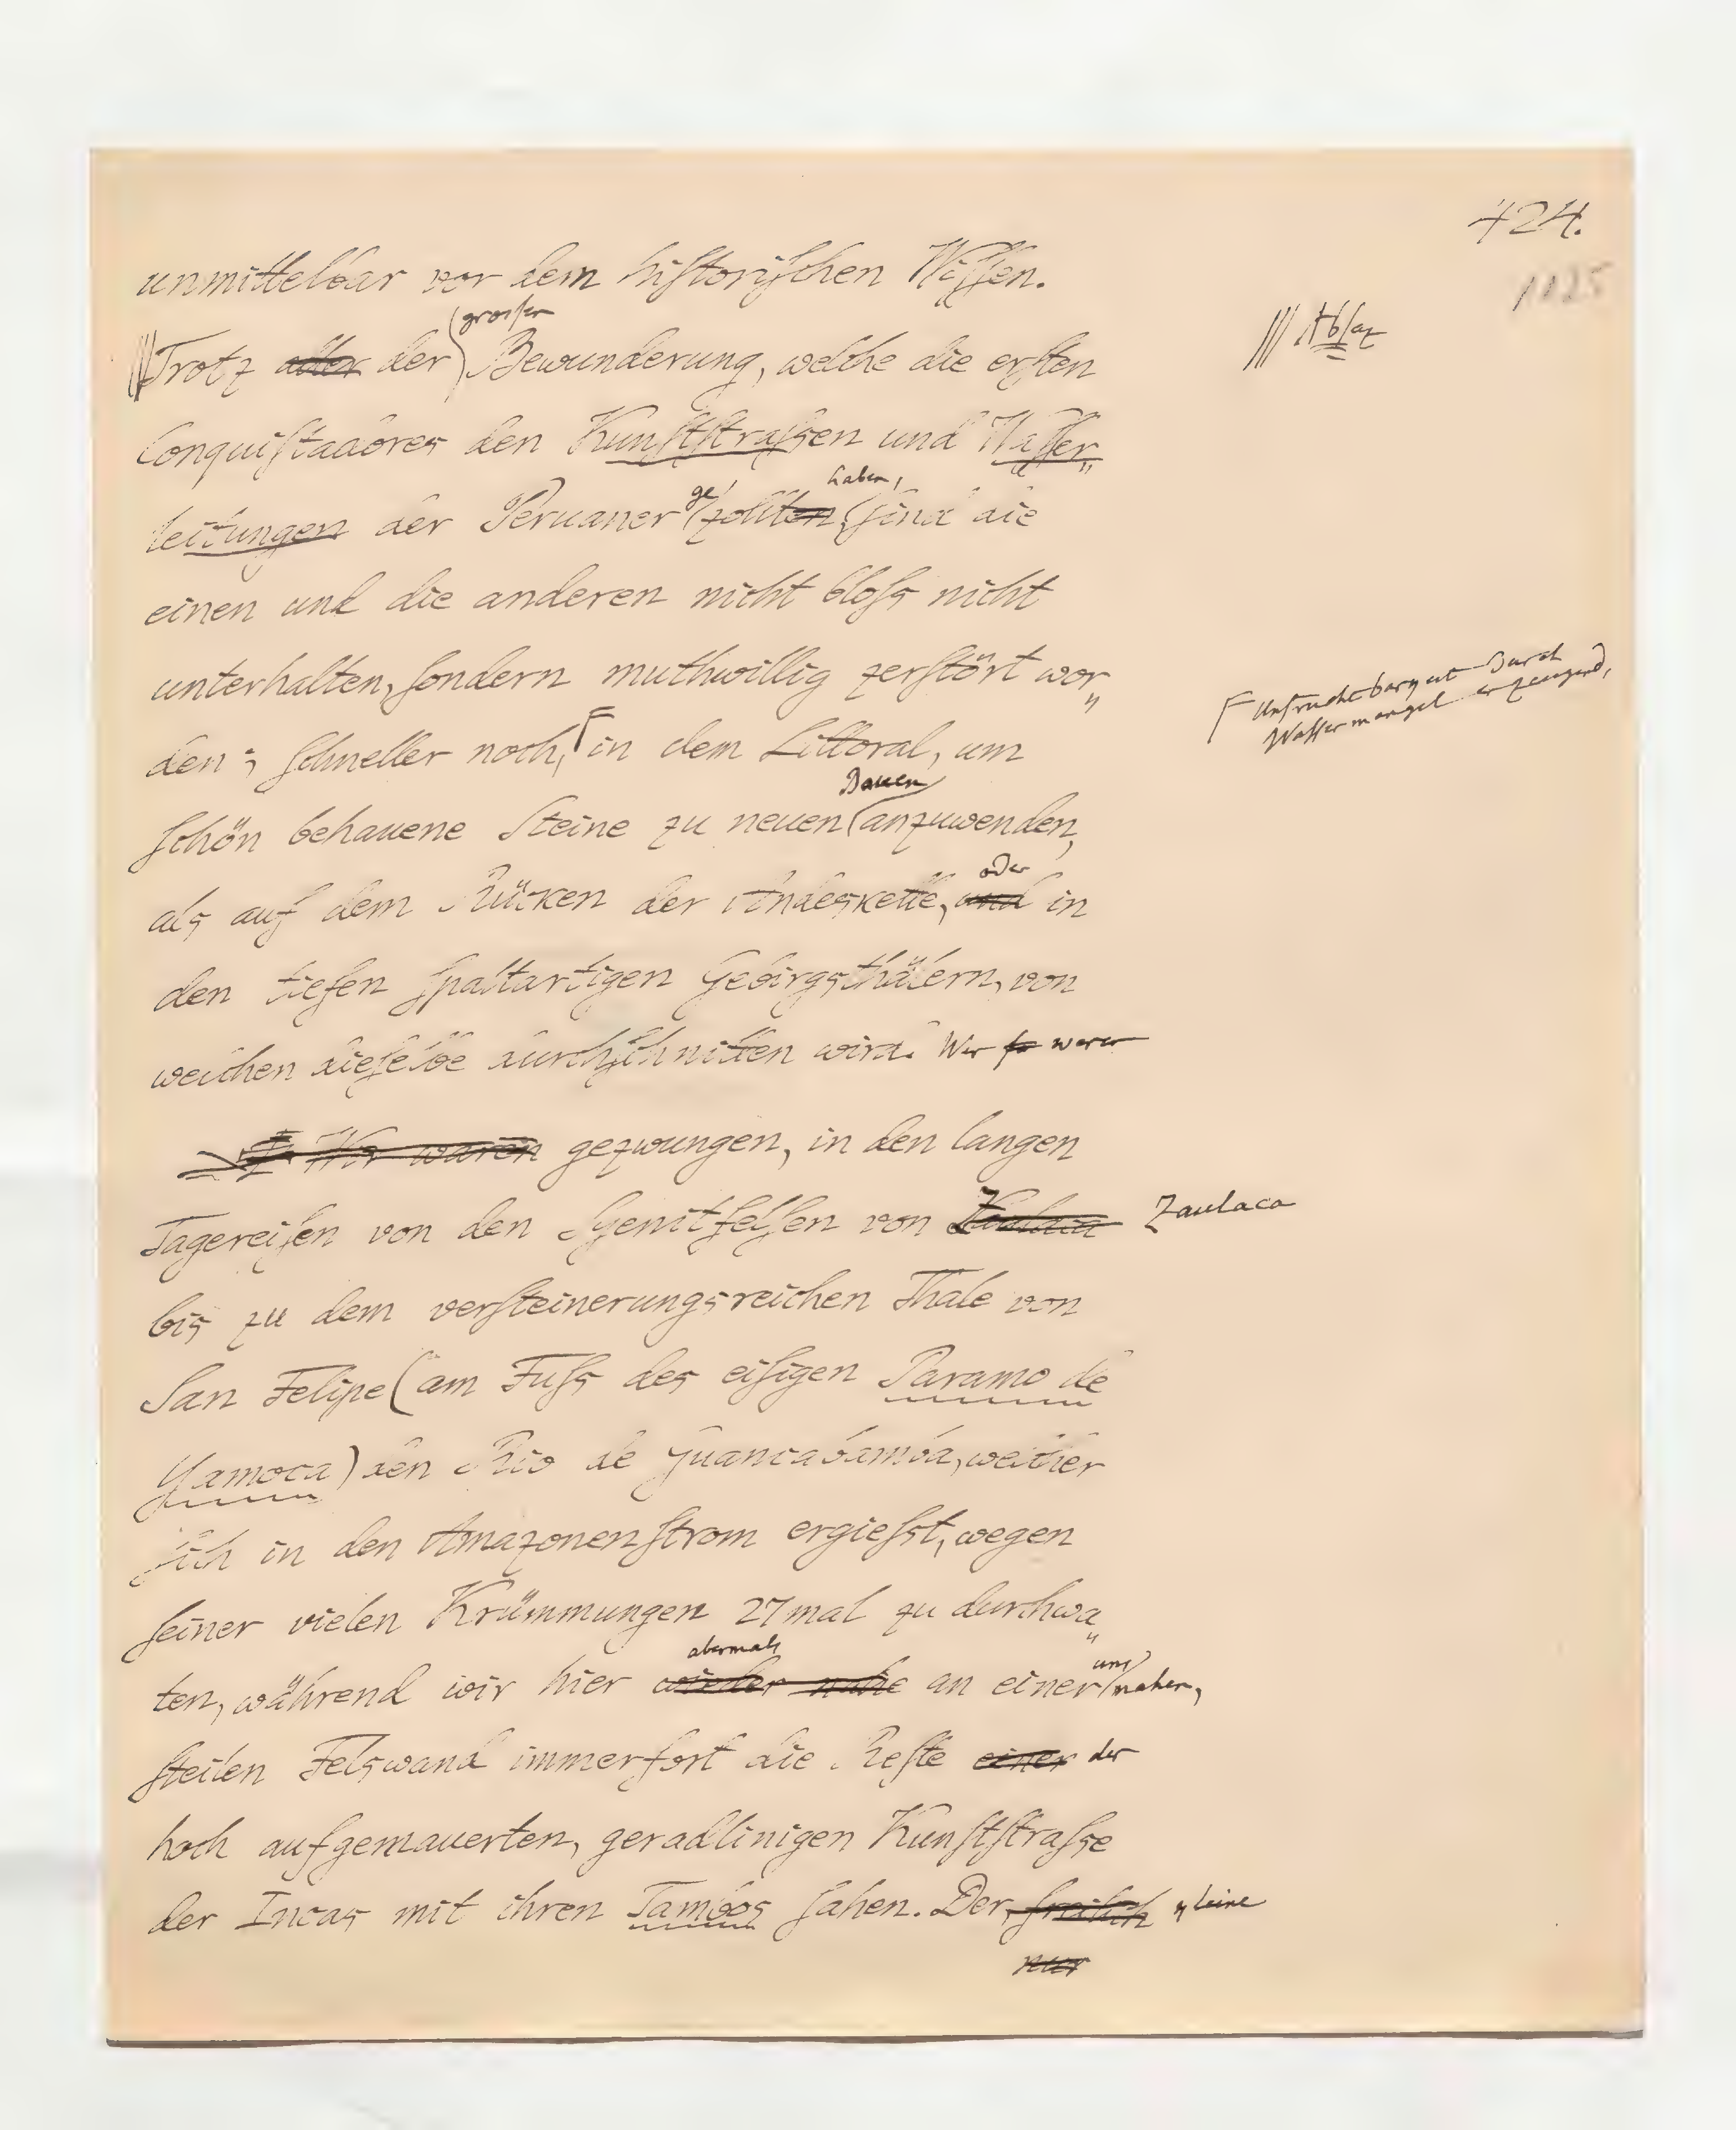 424.
1125
unmittelbar vor dem hiſtoriſchen Wiſſen.
||| Abſaz
(groſſen
|||Trotz aller der) Bewunderung, welche die erſten
Conquiſtadores den Kunſtſtraſsen und Waſſer„
haben,
leitungen der Peruaner ge/zollten, (ſind die
einen und die anderen nicht bloſs nicht
unterhalten, ſondern muthwillig zerſtört wor„
den; ſchneller noch, Γ in dem Littoral, um
Γ Unfruchtbarkeit durch
Waſſermangel erzeugend,
Bauen
ſchön behauene Steine zu neuen (anzuwenden,
oder
als auf dem Rücken der Andeskette, und in
den tiefen ſpaltartigen Gebirgsthälern, von
welchen dieſelbe durchſchnitten wird. Wir waren
Wir waren gezwungen, in den langen
Tagereiſen von den Syenitfelſen von Zaulaca
bis zu dem verſteinerungsreichen Thale von
San Felipe (am Fuſs des eiſigen Paramo de
Yamoca) den Rio de Guancabamba, welcher
ſich in den Amazonenſtrom ergieſst, wegen
ſeiner vielen Krümmungen 27mal zu durchwa„
abermals
ten, während wir hier wieder nahe an einer uns/nahen,
ſteilen Felswand immerfort die Reſte einer der
hoch aufgemauerten, geradlinigen Kunſtſtraſse
der Incas mit ihren Tambos ſahen. Der, freilich kleine
nur